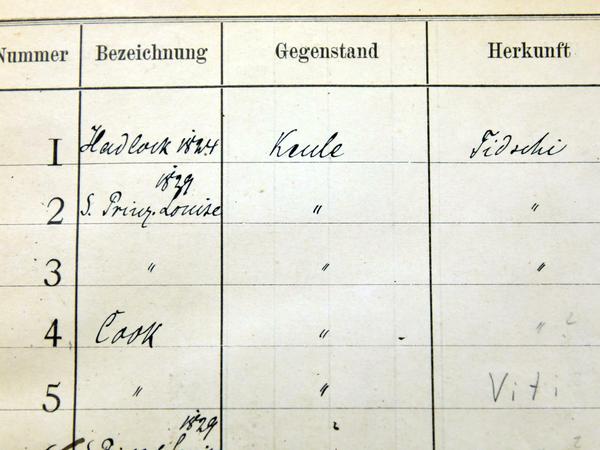 Nummer Bezeichnung Gegenstand Herkunft
1 Hadlock 1824 Keule Fidschi
1829
2 S. Prinz. Louise " "
3 " " "
4 Cook " " ?
5 " " Viti
1829